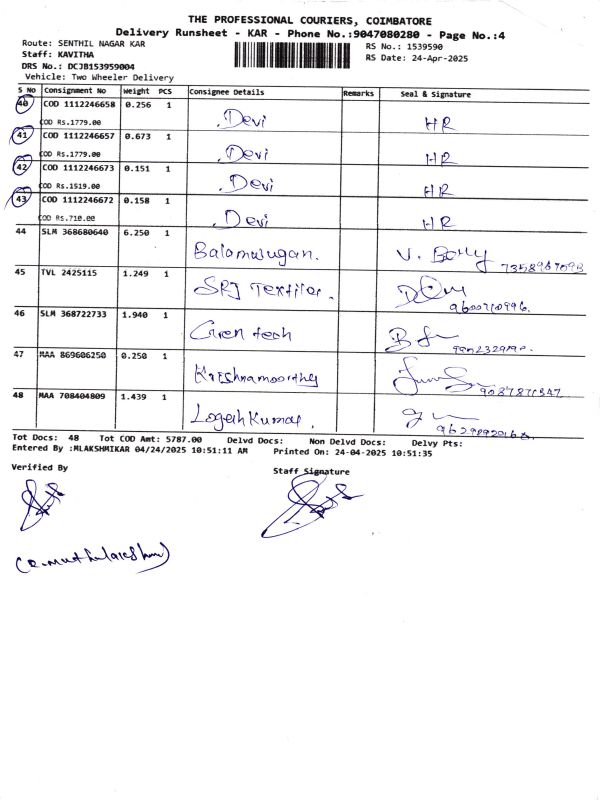 THE PROFESSIONAL COURIERS, COIMBATORE
Delivery Runsheet - KAR - Phone No.:9047080280 - Page No.:4
Route: SENTHIL NAGAR KAR RS No.: 1539590
Staff: KAVITHA RS Date: 24-Apr-2025
DRS No.: DCJB153959004
Vehicle: Two Wheeler Delivery
S No Consignment No Weight PCS Consignee Details Remarks Seal & Signature
40 COD 1112246658 0.256 1 Devi HR
COD Rs.1779.00
41 COD 1112246657 0.673 1 Devi HR
COD Rs.1779.00
42 COD 1112246673 0.151 1 Devi HR
COD Rs.1519.00
43 COD 1112246672 0.158 1 Devi HR
COD Rs.710.00
44 SLM 368680640 6.250 1 Balamurugan.
45 TVL 2425115 1.249 1 SRJ Textiles.
46 SLM 368722733 1.940 1 Green tech
47 MAA 869606250 0.250 1 Krishnamoorthy
48 MAA 708404809 1.439 1 Logesh Kumar
Tot Docs: 48 Tot COD Amt: 5787.00 Delvd Docs: Non Delvd Docs: Delvy Pts:
Entered By :MLAKSHMIKAR 04/24/2025 10:51:11 AM Printed On: 24-04-2025 10:51:35
Verified By Staff Signature